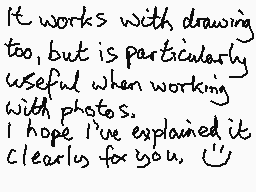 It works with drawing
too, but is particularly
useful when working
with photos.
I hope I've explained it
clearly for you.